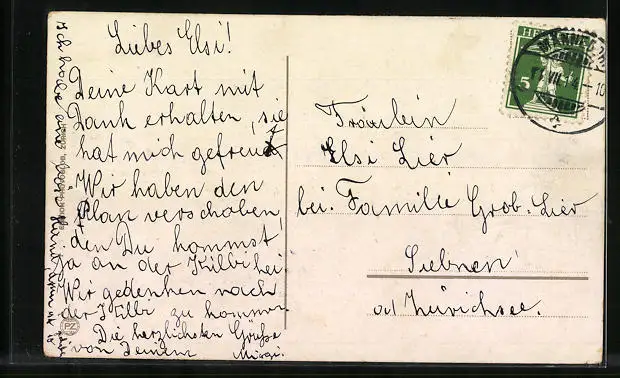 Liebes Elsi!
Deine Kart mit
Dank erhalten, sie
hat mich gefreut
Wir haben den
Plan verschoben,
den Du kommst
ja an der Kilbi hei
Wir gedenken nach
der Kilbi zu kommen
Die herzlichsten Grüße
von Deinem
Fräulein
Elsi Lier
bei Familie Grob-Lier
Siebnen
a/ Zürichsee.
HEL
5
VII
10
PZ
Ich